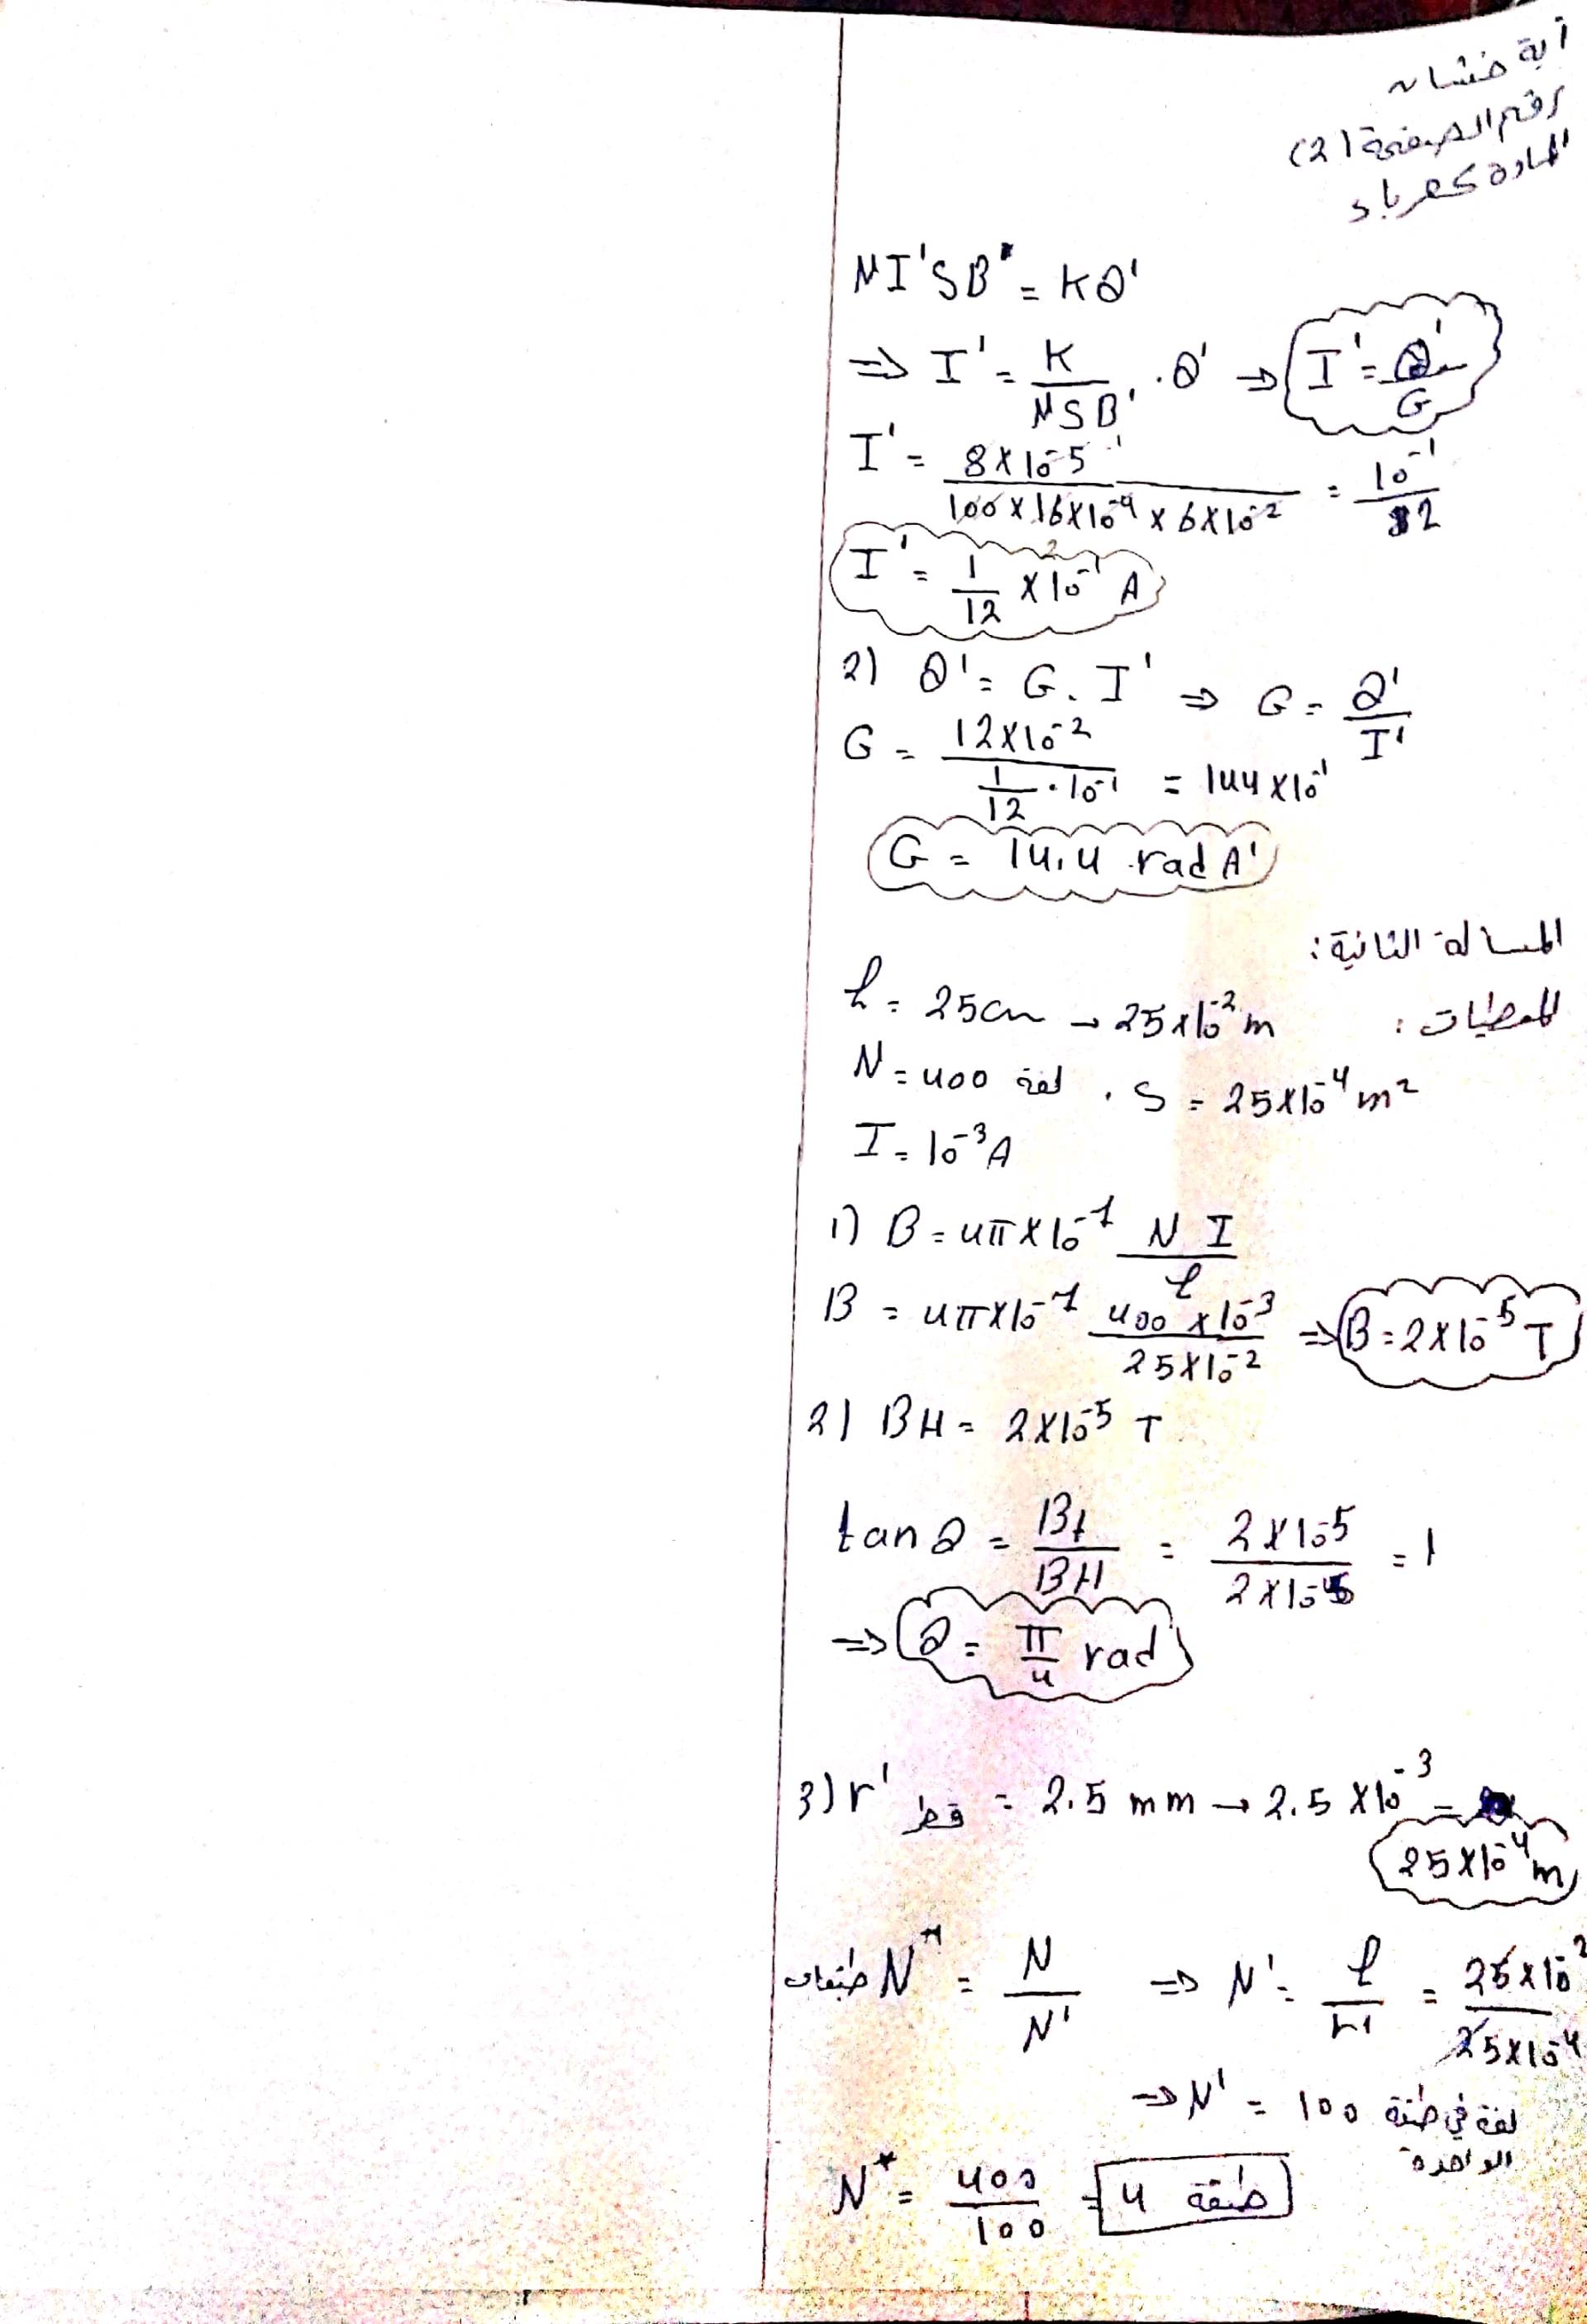 آية خشان
رقم الصفحة (2)
المادة كهرباء
NI'SB' = Kθ'
⇒ I' = K/NSB' . θ' → I' = θ'/G
I' = 8×10⁻⁵ / 100×16×10⁻⁴×6×10⁻² = 10⁻¹/12
I' = 1/12 × 10⁻¹ A
2) θ' = G. I' ⇒ G = θ'/I'
G = 12×10⁻² / 1/12 . 10⁻¹ = 144×10⁻¹
G = 14,4 rad A'
المسألة الثانية:
المعطيات:
ℓ = 25cm → 25×10⁻² m
N = 400 لفة . S = 25×10⁻⁴ m²
I = 10⁻³ A
1) B = 4π×10⁻⁷ N I / ℓ
B = 4π×10⁻⁷ 400×10⁻³ / 25×10⁻² ⇒ B = 2×10⁻⁵ T
2) BH = 2×10⁻⁵ T
tan θ = Bt/BH = 2×10⁻⁵ / 2×10⁻⁵ = 1
⇒ θ = π/4 rad
3) r' قطر = 2.5 mm → 2.5×10⁻³ =
25×10⁻⁴ m
طبقات N* = N/N' ⇒ N' = ℓ/r' = 25×10⁻² / 25×10⁻⁴
⇒ N' = 100 لفة في طبقة
الواحدة
N* = 400/100 = 4 طبقة